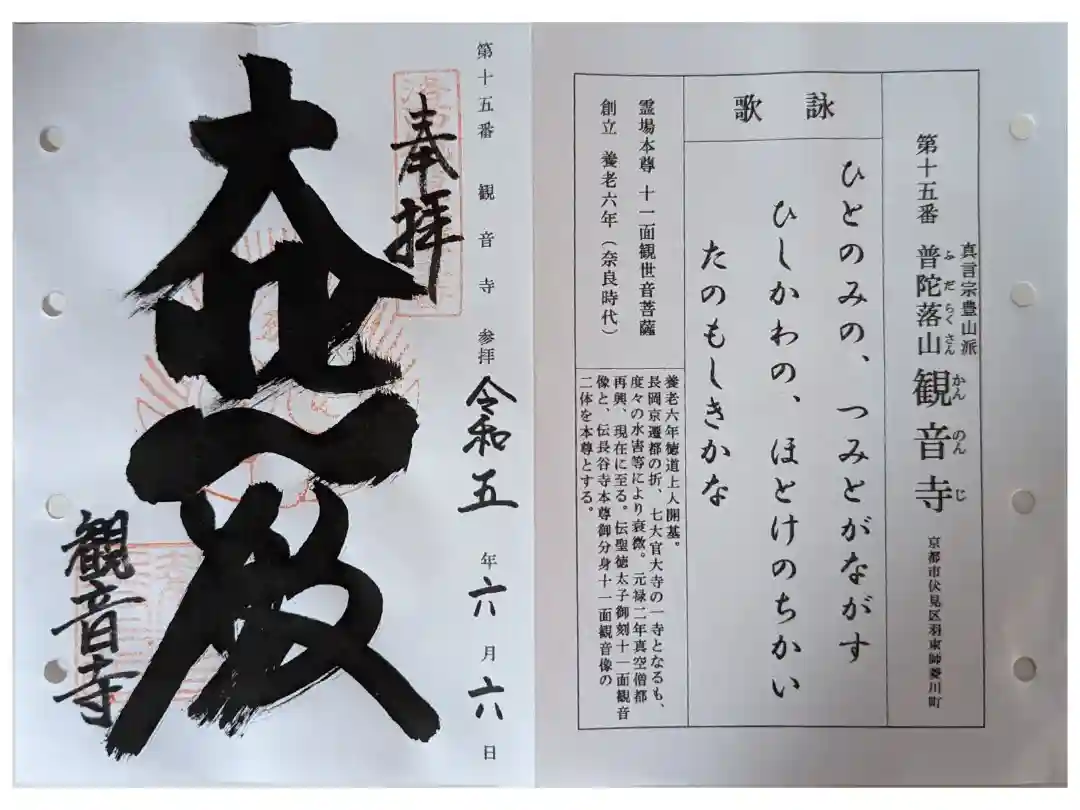 真言宗豊山派
第十五番 普陀落山 観音寺 京都市伏見区羽束師菱川町
ふだらくさん かんのんじ
詠歌
ひとのみの、つみとがながす
ひしかわの、ほとけのちかい
たのもしきかな
霊場本尊 十一面観世音菩薩
創立 養老六年(奈良時代)
養老六年徳道上人開基。
長岡京遷都の折、七大官大寺の一寺となるも、
度々の水害等により衰微。元禄二年真空僧都
再興、現在に至る。伝聖徳太子御刻十一面観音
像と、伝長谷寺本尊御分身十一面観音像の
二体を本尊とする。
第十五番 観音寺 参拝 令和五年六月六日
奉拝
大悲殿
観音寺